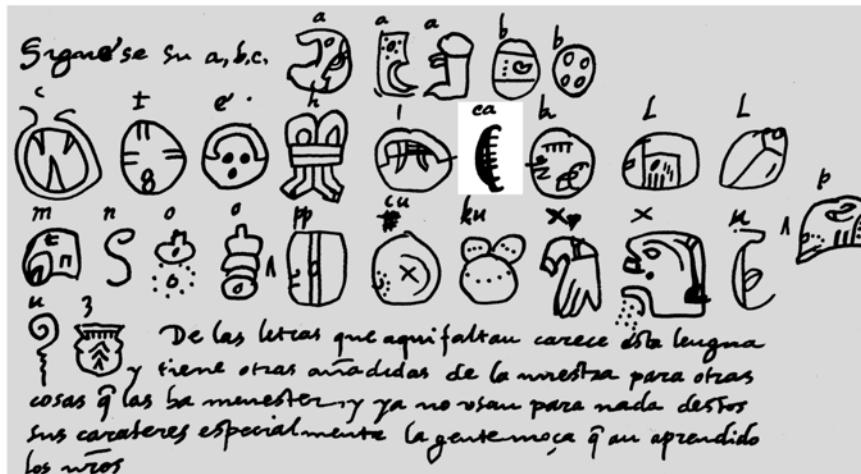 Sigue'se su a, b, c. a a a b b
c t e' h i ca k L L
m n o o pp cu ku x x u p
u z De las letras que aqui faltan carece esta lengua
y tiene otras añadidas de la nuestra para otras
cosas q̃ las ha menester, y ya no usan para nada destos
sus carateres especialmente la gente moça q̃ an aprendido
los nr̃os